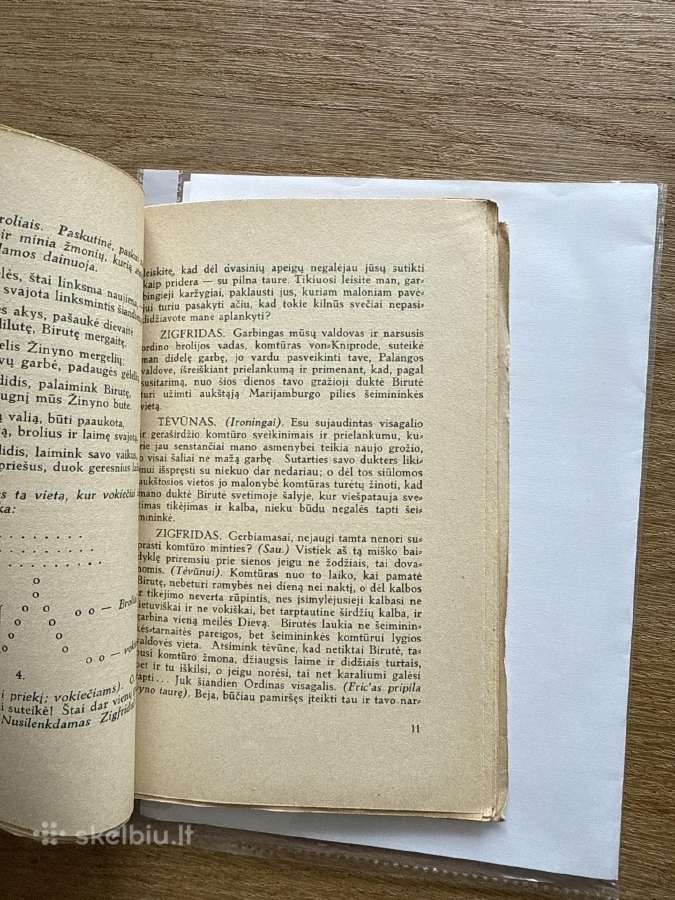 roliais. Paskutinė,
ir minia žmonių, kurią
damos dainuoja.
lės, štai linksma naujiena
svajota linksmintis šiandien
ės akys, pašaukė dievaitė
dilutę, Birutę mergaitę,
elis Žinyno mergelių:
vų garbė, padaugės gėlelių
didis, palaimink Birutę,
ugnį mūs Žinyno bute.
ų valią, būti paaukota,
ą, brolius ir laimę svajotą,
didis, laimink savo vaikus,
priešus, duok geresnius
s ta vietą, kur vokiečiai
ka:
o
o o o o — Broliai
o o
o o o —
4.
į priekį; vokiečiams).
i suteikė! Štai dar vieną
Nusilenkdamas Zigfridui
leiskite, kad dėl dvasinių apeigų negalėjau jūsų sutikti
kaip pridera — su pilna taure. Tikiuosi leisite man, gar-
bingieji karžygiai, paklausti jus, kuriam maloniam pavė-
jui turiu pasakyti ačiu, kad tokie kilnūs svečiai nepasi-
didžiavote mane aplankyti?
ZIGFRIDAS. Garbingas mūsų valdovas ir narsusis
ordino brolijos vadas, komtūras von-Kniprode, suteikė
man didelę garbę, jo vardu pasveikinti tave, Palangos
valdove, išreiškiant prielankumą ir primenant, kad, pagal
susitarimą, nuo šios dienos tavo gražioji duktė Birutė
turi užimti aukštąją Marijamburgo pilies šeimininkės
vietą.
TĖVŪNAS. (Ironingai). Esu sujaudintas visagalio
ir geraširdžio komtūro sveikinimais ir prielankumu, ku-
rie jau senstančiai mano asmenybei teikia naujo grožio,
o visai šaliai ne mažą garbę. Sutarties savo dukters liki-
mui išspręsti su niekuo dar nedariau; o dėl tos siūlomos
aukštosios vietos jo malonybė komtūras turėtų žinoti, kad
mano duktė Birutė svetimoje šalyje, kur viešpatauja sve-
timas tikėjimas ir kalba, nieku būdu negalės tapti šei-
mininkė.
ZIGFRIDAS. Gerbiamasai, nejaugi tamta nenori su-
prasti komtūro minties? (Sau.) Vistiek aš tą miško bai-
dyklę priremsiu prie sienos jeigu ne žodžiais, tai dova-
nomis. (Tėvūnui). Komtūras nuo to laiko, kai pamatė
Birutę, nebeturi ramybės nei dieną nei naktį, o dėl kalbos
ir tikėjimo neverta rūpintis, nes įsimylėjusieji kalbasi ne
lietuviškai ir ne vokiškai, bet tarptautine širdžių kalba, ir
tarbina vieną meilės Dievą. Birutės laukia ne šeiminin-
kės-tarnaitės pareigos, bet šeimininkės komtūrui lygios
valdovės vieta. Atsimink tėvūne, kad netiktai Birutė, ta-
pusi komtūro žmona, džiaugsis laime ir didžiais turtais,
bet ir tu iškilsi, o jeigu norėsi, tai net karaliumi galėsi
tapti... Juk šiandien Ordinas visagalis. (Fric'as pripila
žyno taurę). Beja, būčiau pamiršęs įteikti tau ir tavo nar-
11
skelbiu.lt